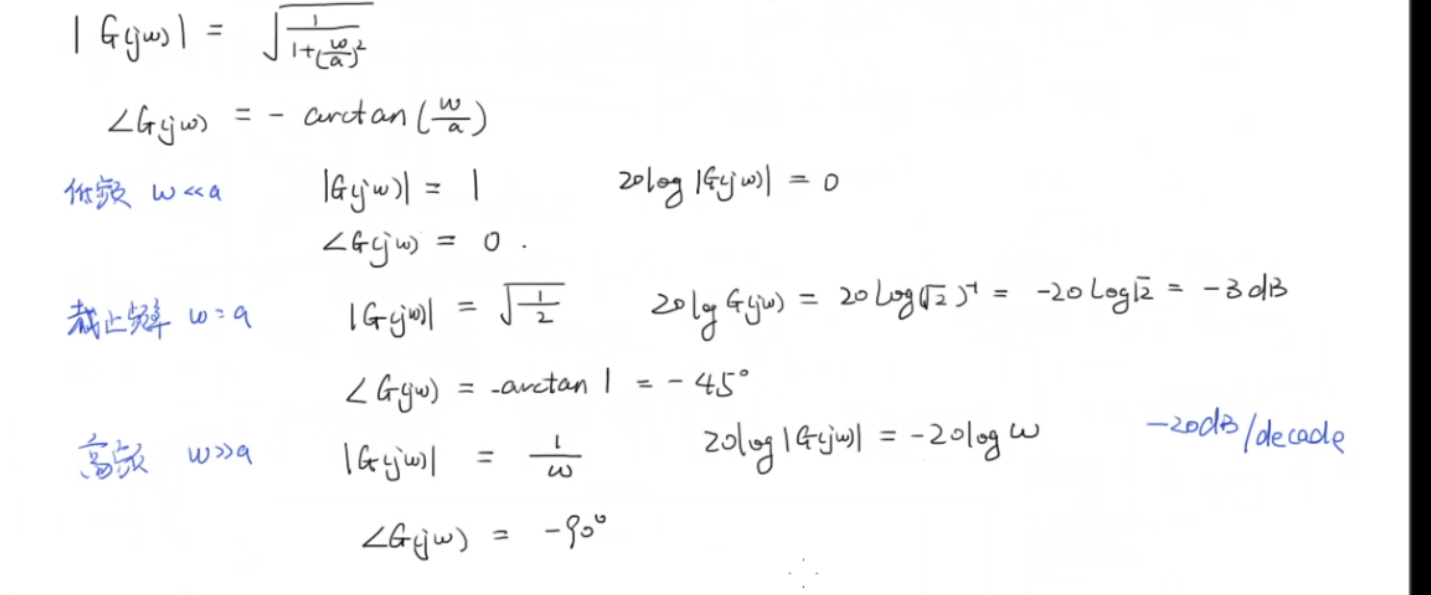 |G(jω)| = √(1/(1+(ω/a)²))
∠G(jω) = - arctan(ω/a)
低频 ω<<a |G(jω)| = 1 20log |G(jω)| = 0
∠G(jω) = 0 .
截止频率 ω=a |G(jω)| = √(1/2) 20lg G(jω) = 20 Log(√2)⁻¹ = -20 Log√2 = -3dB
∠G(jω) = -arctan 1 = - 45°
高频 ω>>a |G(jω)| = 1/ω 20log |G(jω)| = -20log ω -20dB/decade
∠G(jω) = -90°